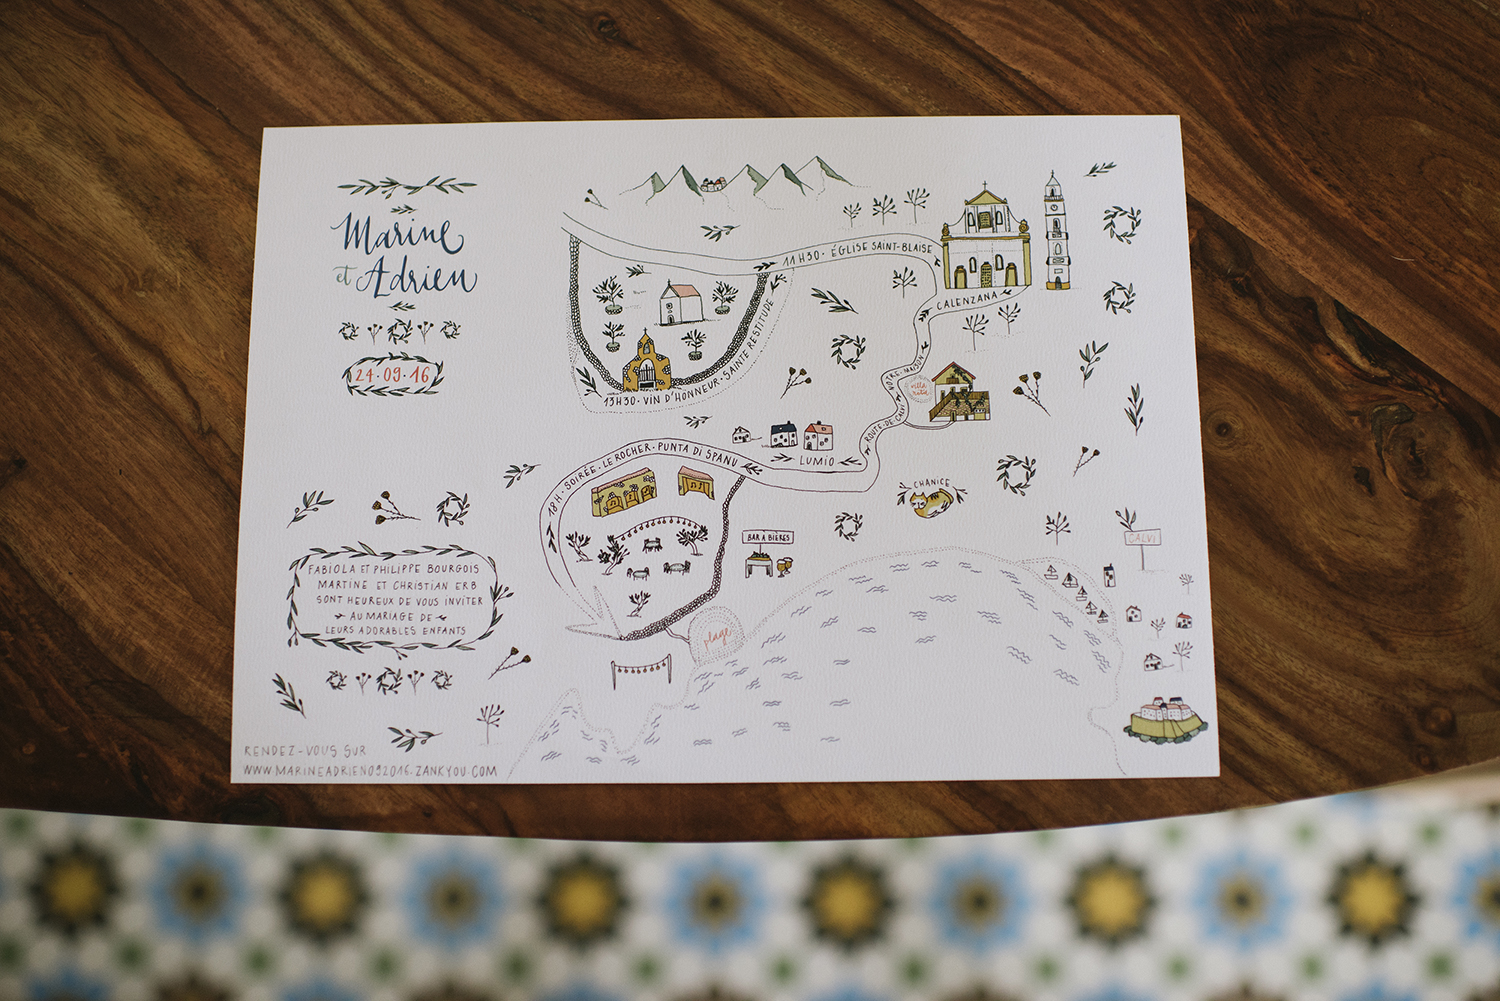 Marine
et Adrien
24·09·16
FABIOLA ET PHILIPPE BOURGOIS
MARTINE ET CHRISTIAN ERB
SONT HEUREUX DE VOUS INVITER
AU MARIAGE DE
LEURS ADORABLES ENFANTS
RENDEZ-VOUS SUR
WWW.MARINEADRIEN092016.ZANKYOU.COM
11H30 · ÉGLISE SAINT-BLAISE
CALENZANA
13H30 · VIN D'HONNEUR · SAINTE RESTITUDE
NOTRE-MAISON
ROUTE-DE-CALVI
LUMIO
18H · SOIRÉE · LE ROCHER · PUNTA DI SPANU
CHANICE
BAR À BIÈRES
CALVI
plage